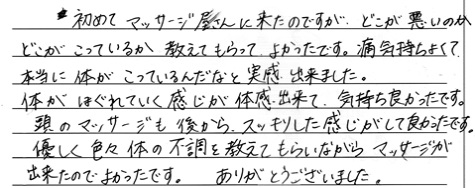 初めて マッサージ屋さんに来たのですが、どこが悪いのか
どこがこっているか 教えてもらって よかったです。痛気持ちよくて
本当に 体が こっているんだなと 実感 出来ました。
体が ほぐれていく感じが 体感 出来て、気持ち良かったです。
頭のマッサージも 後から スッキリした感じがして良かったです。
優しく 色々 体の不調を教えてもらいながら マッサージが
出来たのでよかったです。 ありがとうございました。